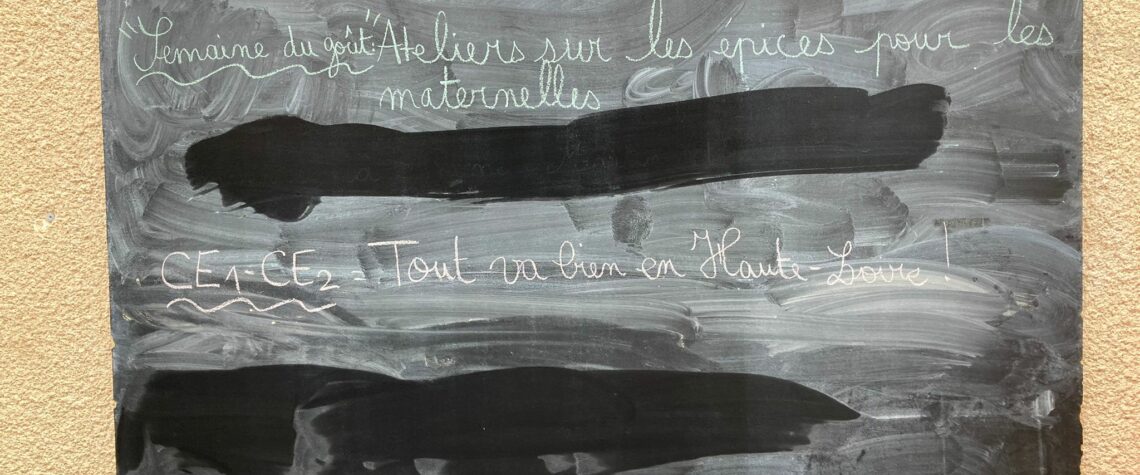 "Semaine du goût:" Ateliers sur les épices pour les
maternelles
CE1-CE2 = Tout va bien en Haute-Loire !